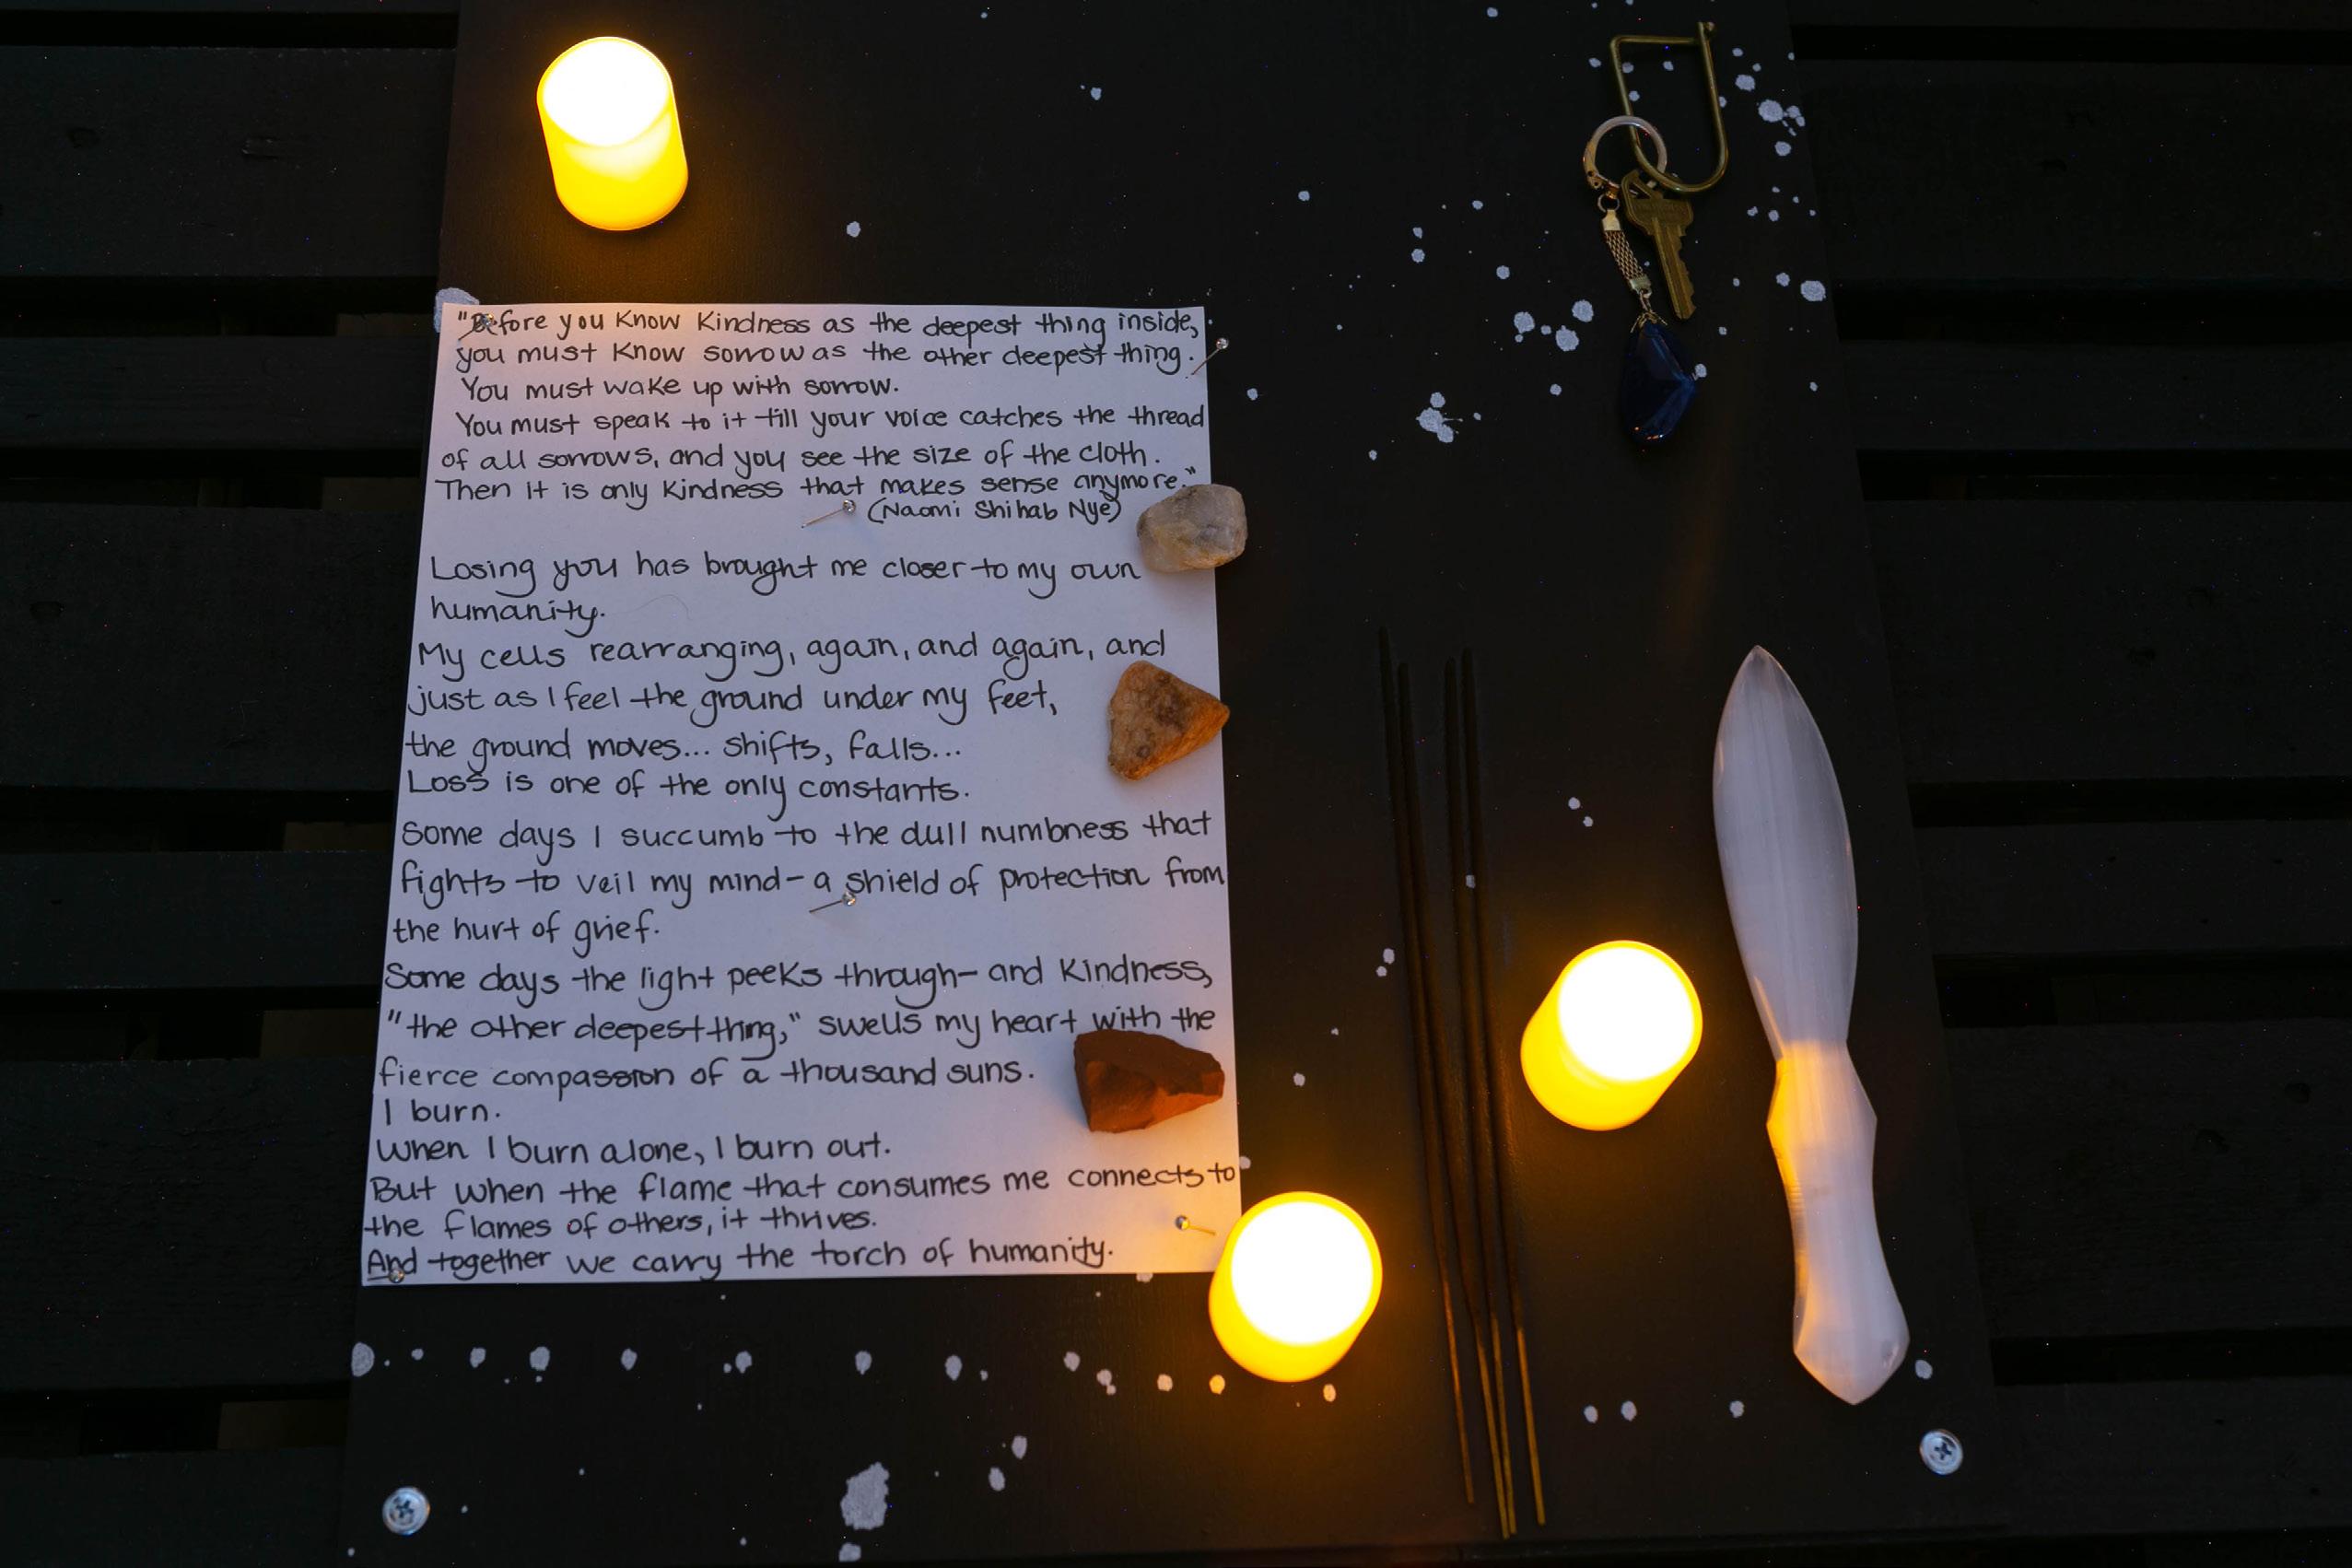 "Before you Know Kindness as the deepest thing inside,
you must Know sorrow as the other deepest thing.
You must wake up with sorrow.
You must speak to it till your voice catches the thread
of all sorrows, and you see the size of the cloth.
Then it is only Kindness that makes sense anymore."
(Naomi Shihab Nye)
Losing you has brought me closer to my own
humanity.
My cells rearranging, again, and again, and
just as I feel the ground under my feet,
the ground moves... shifts, falls...
Loss is one of the only constants.
Some days I succumb to the dull numbness that
fights to veil my mind- a shield of protection from
the hurt of grief.
Some days the light peeks through- and Kindness,
"the other deepest thing," swells my heart with the
fierce compassion of a thousand suns.
I burn.
When I burn alone, I burn out.
But when the flame that consumes me connects to
the flames of others, it thrives.
And together we carry the torch of humanity.